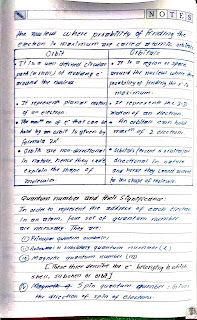 NOTES
the nucleus where probability of finding the
electron is maximum are called atomic orbitals
Orbit
Orbitals
• It is a well defined circular
path (or shell) of revolving e⁻
around the nucleus.
• It is a region or space
around the nucleus where the
probability of finding the e⁻ is
maximum.
• It represent planar motion
of an electron.
• It represent the 3-D
motion of an electron.
• The max^m no of e⁻ that can be
hold by an orbit is given by
formula 2n²
• An orbital can hold
max^m of 2 electron.
• Orbits are non-directional
in nature, hence they can't
explain the shape of
molecules.
directional in nature
and hence they
the shape of molecule.
Quantum number and their significance:
In order to represent the address of each electron
in an atom, four set of quantum number
are necessary. They are:
Principal quantum number
quantum number (l)
Magnetic quantum number (m)
[These three describe the e⁻ belonging to which
shell, subshell or orbit]
Spin quantum number
the direction of spin of electrons